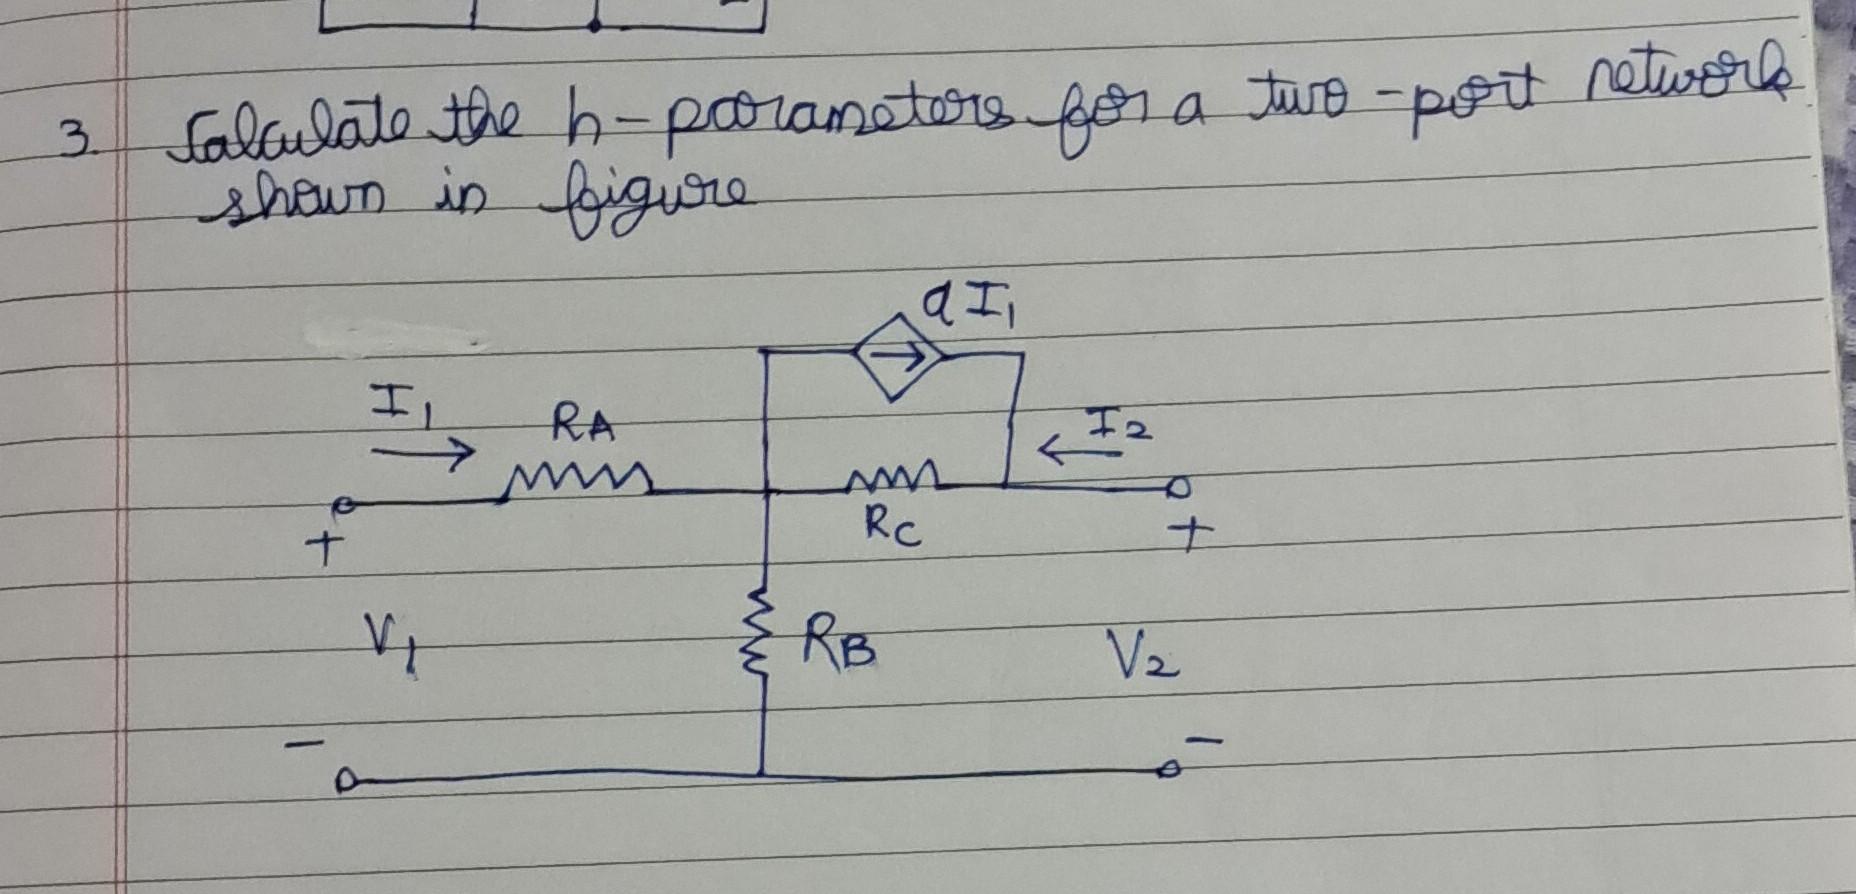 3. Calculate the h-parameters for a two-port network
shown in figure
aI₁
I₁
RA
I₂
+
RC
+
V₁
RB
V₂
-
-